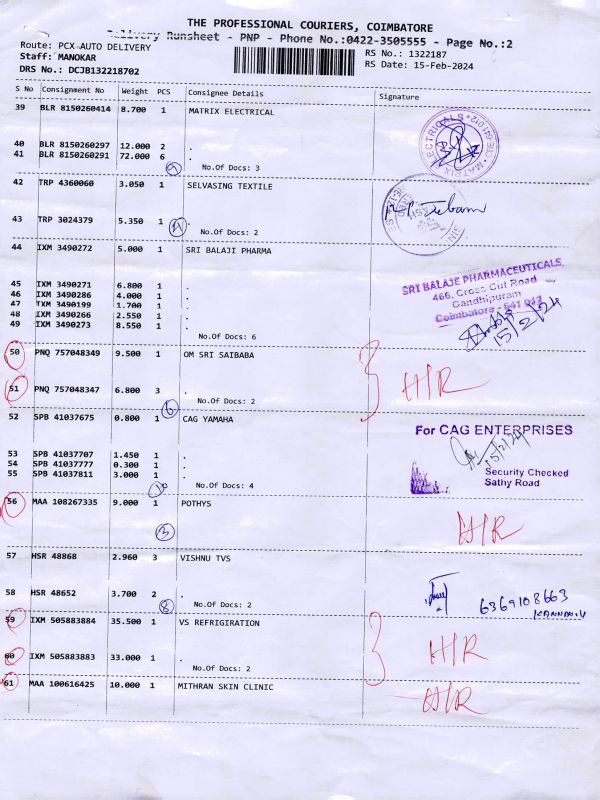 THE PROFESSIONAL COURIERS, COIMBATORE
Delivery Runsheet - PNP - Phone No.:0422-3505555 - Page No.:2
Route: PCX-AUTO DELIVERY RS No.: 1322187
Staff: MANOKAR RS Date: 15-Feb-2024
DRS No.: DCJB132218702
S No Consignment No Weight PCS Consignee Details Signature
39 BLR 8150260414 8.700 1 MATRIX ELECTRICAL
40 BLR 8150260297 12.000 2 .
41 BLR 8150260291 72.000 6 .
No.Of Docs: 3
MATRIX ELECTRICALS
42 TRP 4360060 3.050 1 SELVASING TEXTILE
43 TRP 3024379 5.350 1 .
No.Of Docs: 2
44 IXM 3490272 5.000 1 SRI BALAJI PHARMA
45 IXM 3490271 6.800 1 .
46 IXM 3490286 4.000 1 .
47 IXM 3490199 1.700 1 .
48 IXM 3490266 2.550 1 .
49 IXM 3490273 8.550 1 .
No.Of Docs: 6
SRI BALAJE PHARMACEUTICALS,
466, Cross Cut Road
Gandhipuram
Coimbatore - 641 012
15/2/24
50 PNQ 757048349 9.500 1 OM SRI SAIBABA
51 PNQ 757048347 6.800 3 .
No.Of Docs: 2
H/R
6
52 SPB 41037675 0.800 1 CAG YAMAHA
53 SPB 41037707 1.450 1 .
54 SPB 41037777 0.300 1 .
55 SPB 41037811 3.000 1 .
No.Of Docs: 4
For CAG ENTERPRISES
15/2/24
Security Checked
Sathy Road
56 MAA 108267335 9.000 1 POTHYS
3
H/R
57 HSR 48868 2.960 3 VISHNU TVS
58 HSR 48652 3.700 2 .
No.Of Docs: 2
8
6369108663
KANNAN.V
59 IXM 505883884 35.500 1 VS REFRIGIRATION
60 IXM 505883883 33.000 1 .
No.Of Docs: 2
H/R
61 MAA 100616425 10.000 1 MITHRAN SKIN CLINIC
H/R